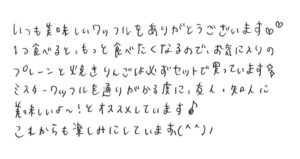 いつも美味しいワッフルをありがとうございます♡♡
1つ食べると、もっと食べたくなるので、お気に入りの
プレーンと焼きりんごは必ずセットで買っています
ミスターワッフルを通りがかる度に、友人・知人に
美味しいよ〜!とオススメしています♪
これからも楽しみにしています。(^^)ﾉ